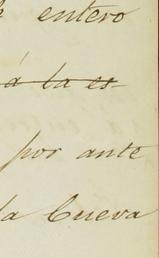 entero
á la es-
por ante
la Cueva